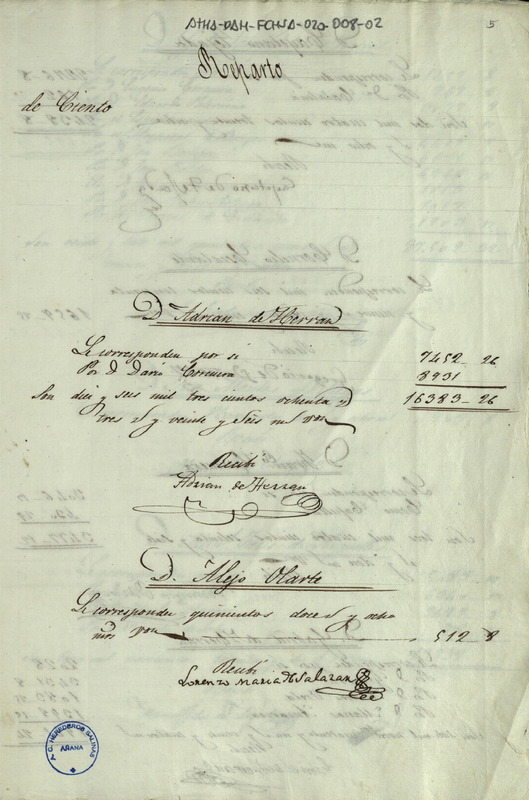 ATHA-DAH-FCHSA-020-008-02
5
Reparto
de Ciento
D. Adrian de Herran
Le corresponden por si 7452 - 26
Por D. Dario 8931
Son diez y seis mil tres cientos ochenta y 16383 - 26
tres rs y veinte y seis mrs von
Recibi
Adrian de Herran
D. Alejo Olarte
Le corresponden quinientos doce rs y ocho
mrs von 512 8
Recibi
Lorenzo Maria de Salazar
A. C. HEREDEROS SALINAS
AÑANA